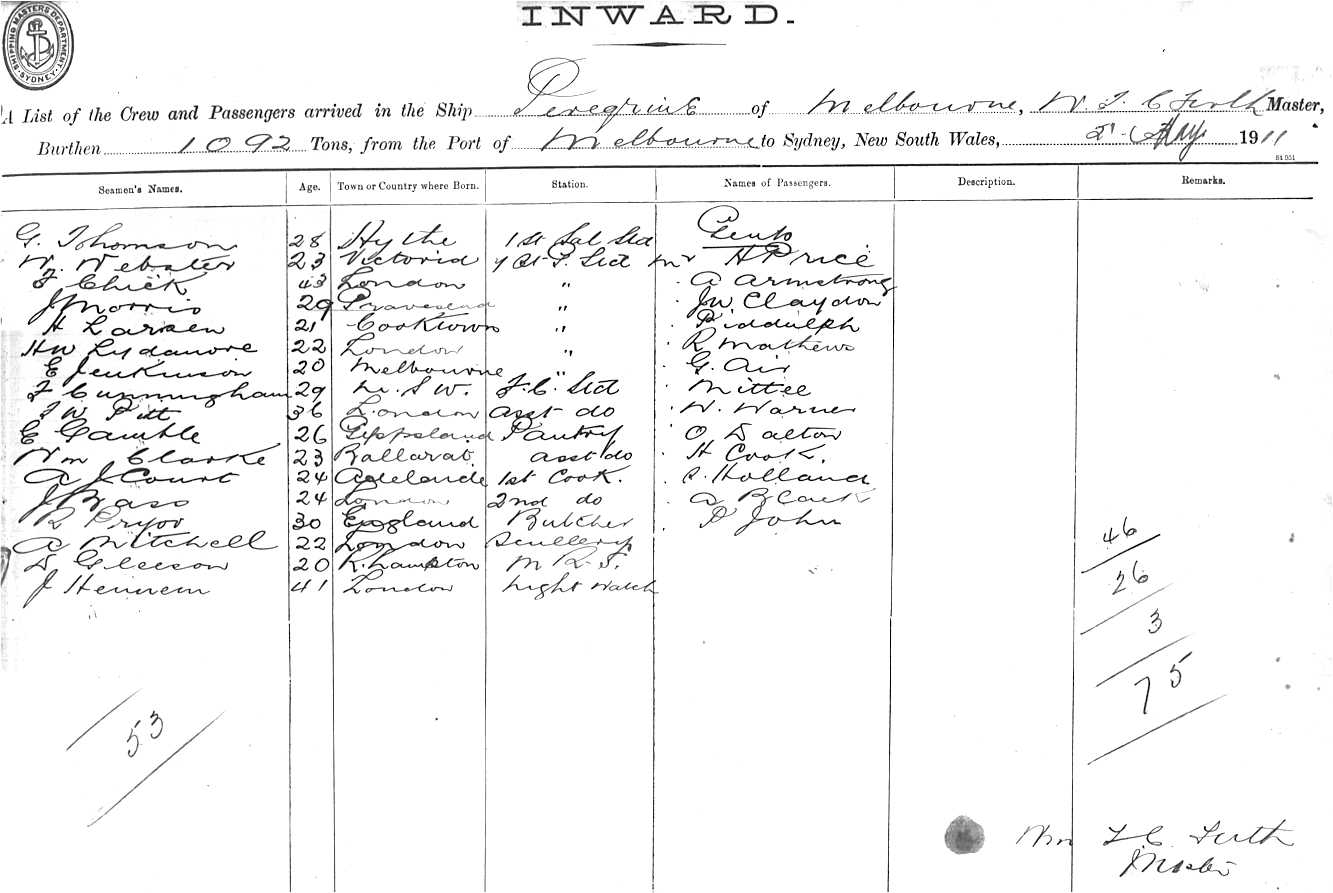 SHIPPING MASTERS DEPARTMENT. SYDNEY.
INWARD.
A List of the Crew and Passengers arrived in the Ship Peregrine of Melbourne, W. T. C Firth Master,
Burthen 1092 Tons, from the Port of Melbourne to Sydney, New South Wales, May 1911
Seamen's Names. Age. Town or Country where Born. Station. Names of Passengers. Description. Remarks.
G. Thomson 28 Hythe 1st Sal Std Gents
W. Webster 23 Victoria Std Mr H Price
F Chick 43 London " A Armstrong
J Morris 29 Gravesend " JW Claydon
H Larsen 21 Cooktown " Biddulph
HW Lydamore 22 London " R Mathews
E Jenkinson 20 Melbourne " G. Air
F Cunningham 29 N. S W. F. C. Std Mittee
F W Pitt 36 London asst do W. Warner
E Gamble 26 Gippsland Pantry O Dalton
Wm Clarke 23 Ballarat asst do H Cook.
A J Court 24 Adelaide 1st Cook. Holland
J Bass 24 London 2nd do A
R Pryor 30 England Butcher P John
A Mitchell 22 London Scullery 46
D Gleeson 20 R.hampton M R. S.
J Hennem 41 London Night Watch 26
3
75
53
Wm T C Firth
Master